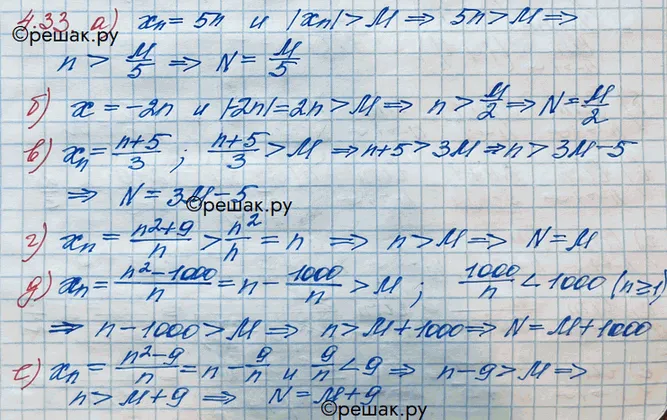 4.33 а) xₙ = 5n и |xₙ| > M ⇒ 5n > M ⇒
©решак.ру
n > M/5 ⇒ N = M/5
б) x = -2n и |-2n| = 2n > M ⇒ n > M/2 ⇒ N = M/2
в) xₙ = (n+5)/3 ; (n+5)/3 > M ⇒ n+5 > 3M ⇒ n > 3M-5
⇒ N = 3M-5
©решак.ру
г) xₙ = (n²+9)/n > n²/n = n ⇒ n > M ⇒ N = M
д) xₙ = (n²-1000)/n = n - 1000/n > M ; 1000/n < 1000 (n≥1)
⇒ n-1000 > M ⇒ n > M+1000 ⇒ N = M+1000
е) xₙ = (n²-9)/n = n - 9/n и 9/n < 9 ⇒ n-9 > M ⇒
n > M+9 ⇒ N = M+9
©решак.ру